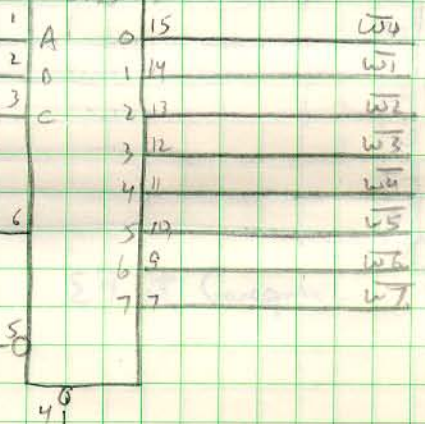 1 A 0 15 W̅4̅
2 B 1 14 W̅1̅
3 C 2 13 W̅2̅
3 12 W̅3̅
4 11 W̅4̅
6 5 10 W̅5̅
6 9 W̅6̅
7 7 W̅7̅
5
4